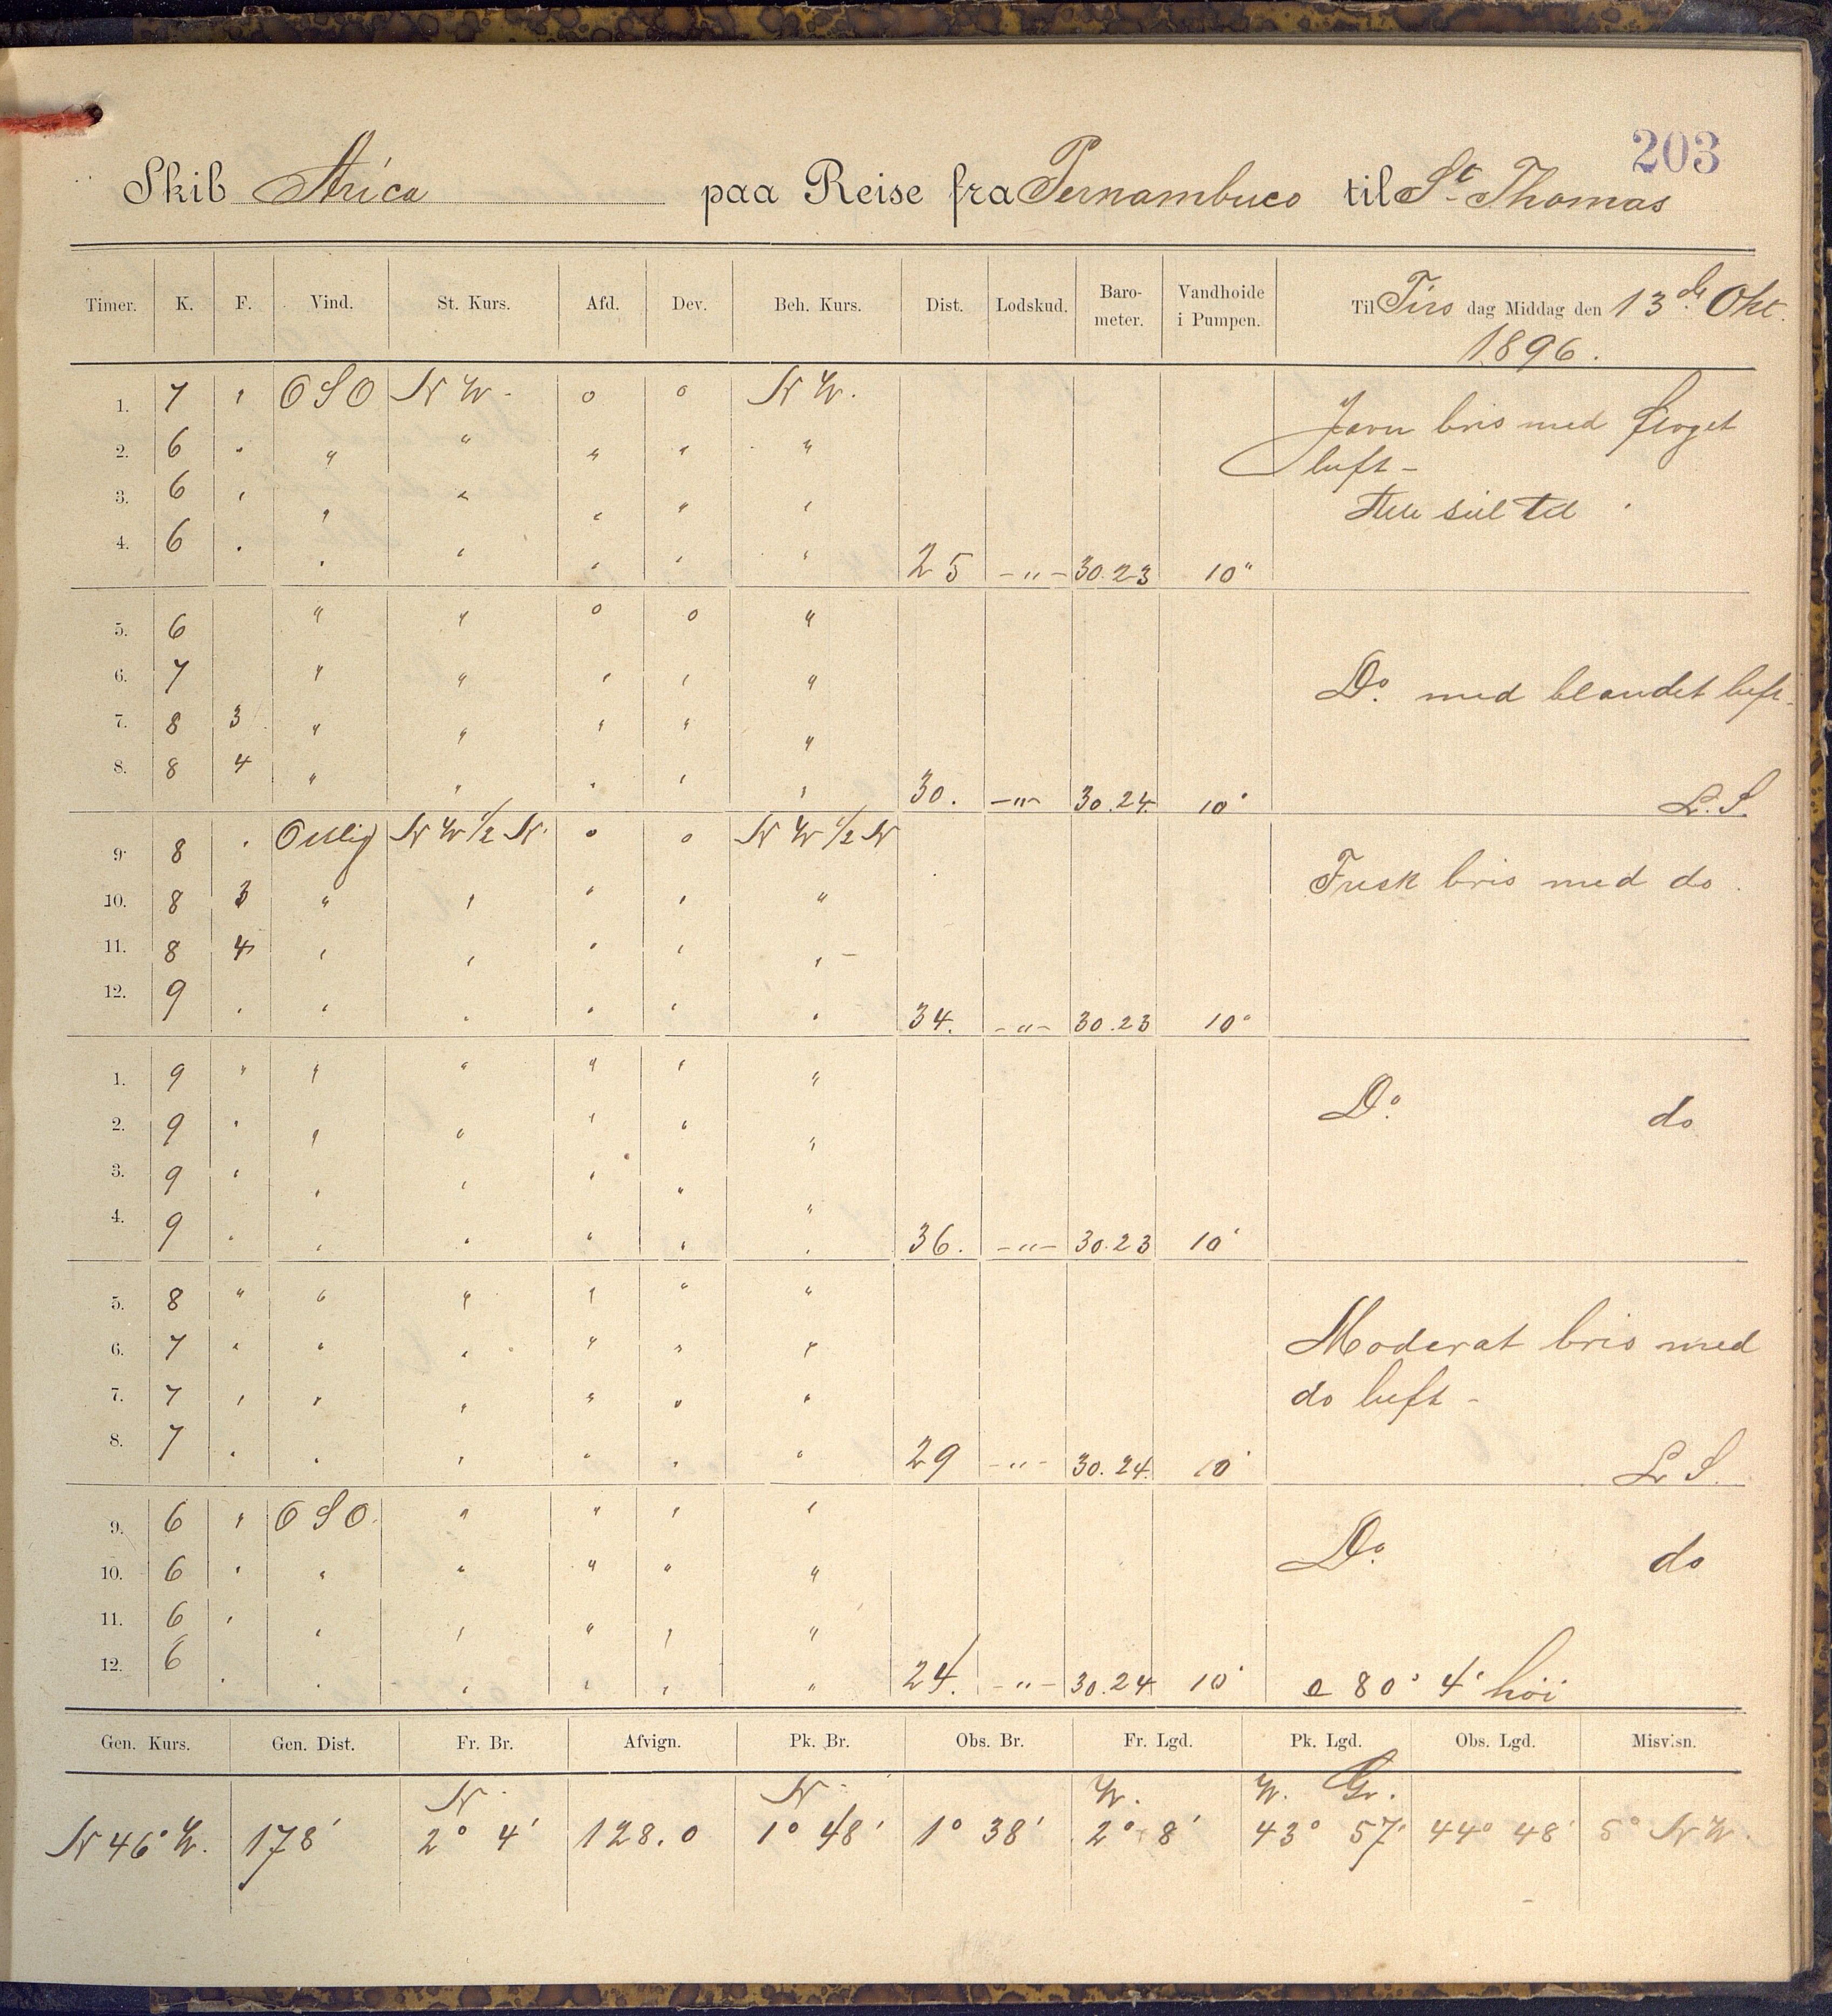 203
Skib Arica paa Reise fra Pernambuco til St Thomas
Timer. K. F. Vind. St. Kurs. Afd. Dev. Beh. Kurs. Dist. Lodskud. Baro-meter. Vandhoide i Pumpen. Til Tirs dag Middag den 13de Okt. 1896.
1. 7 " OSO NW. o o NW. Jævn bris med
2. 6 " " " " " " luft -
3. 6 " " " " " "
4. 6 " " " " " " 25 -"- 30.23 10"
5. 6 " " o o "
6. 7 " " " " " Do. med blandet luft.
7. 8 3 " " " " "
8. 8 4 " " " " " 30. -"- 30.24. 10" L. S.
9. 8 " Ostlig NW 1/2 N. o o NW 1/2 N
10. 8 3 " " " " " Frisk bris med do.
11. 8 4 " " " " "
12. 9 " " " " " " 34. -"- 30.23 10"
1. 9 " " " " " "
2. 9 " " " " " " Do. do
3. 9 " " " " " "
4. 9 " " " " " " 36. -"- 30.23 10"
5. 8 " " " " " "
6. 7 " " " " " " Moderat bris med
7. 7 " " " " " " do luft -
8. 7 " " " " " " 29 -"- 30.24. 10" L S.
9. 6 " OSO. " " " "
10. 6 " " " " " " Do. do
11. 6 " " " " " "
12. 6 " " " " " " 24. -"- 30.24 10" 80° 4' höi
Gen. Kurs. Gen. Dist. Fr. Br. Afvign. Pk. Br. Obs. Br. Fr. Lgd. Pk. Lgd. Obs. Lgd. Misvisn.
N. N. W. W. Gr.
N 46° W. 178' 2° 4' 128.0 1° 48' 1° 38' 2° 8' 43° 57' 44° 48' 5° NW.